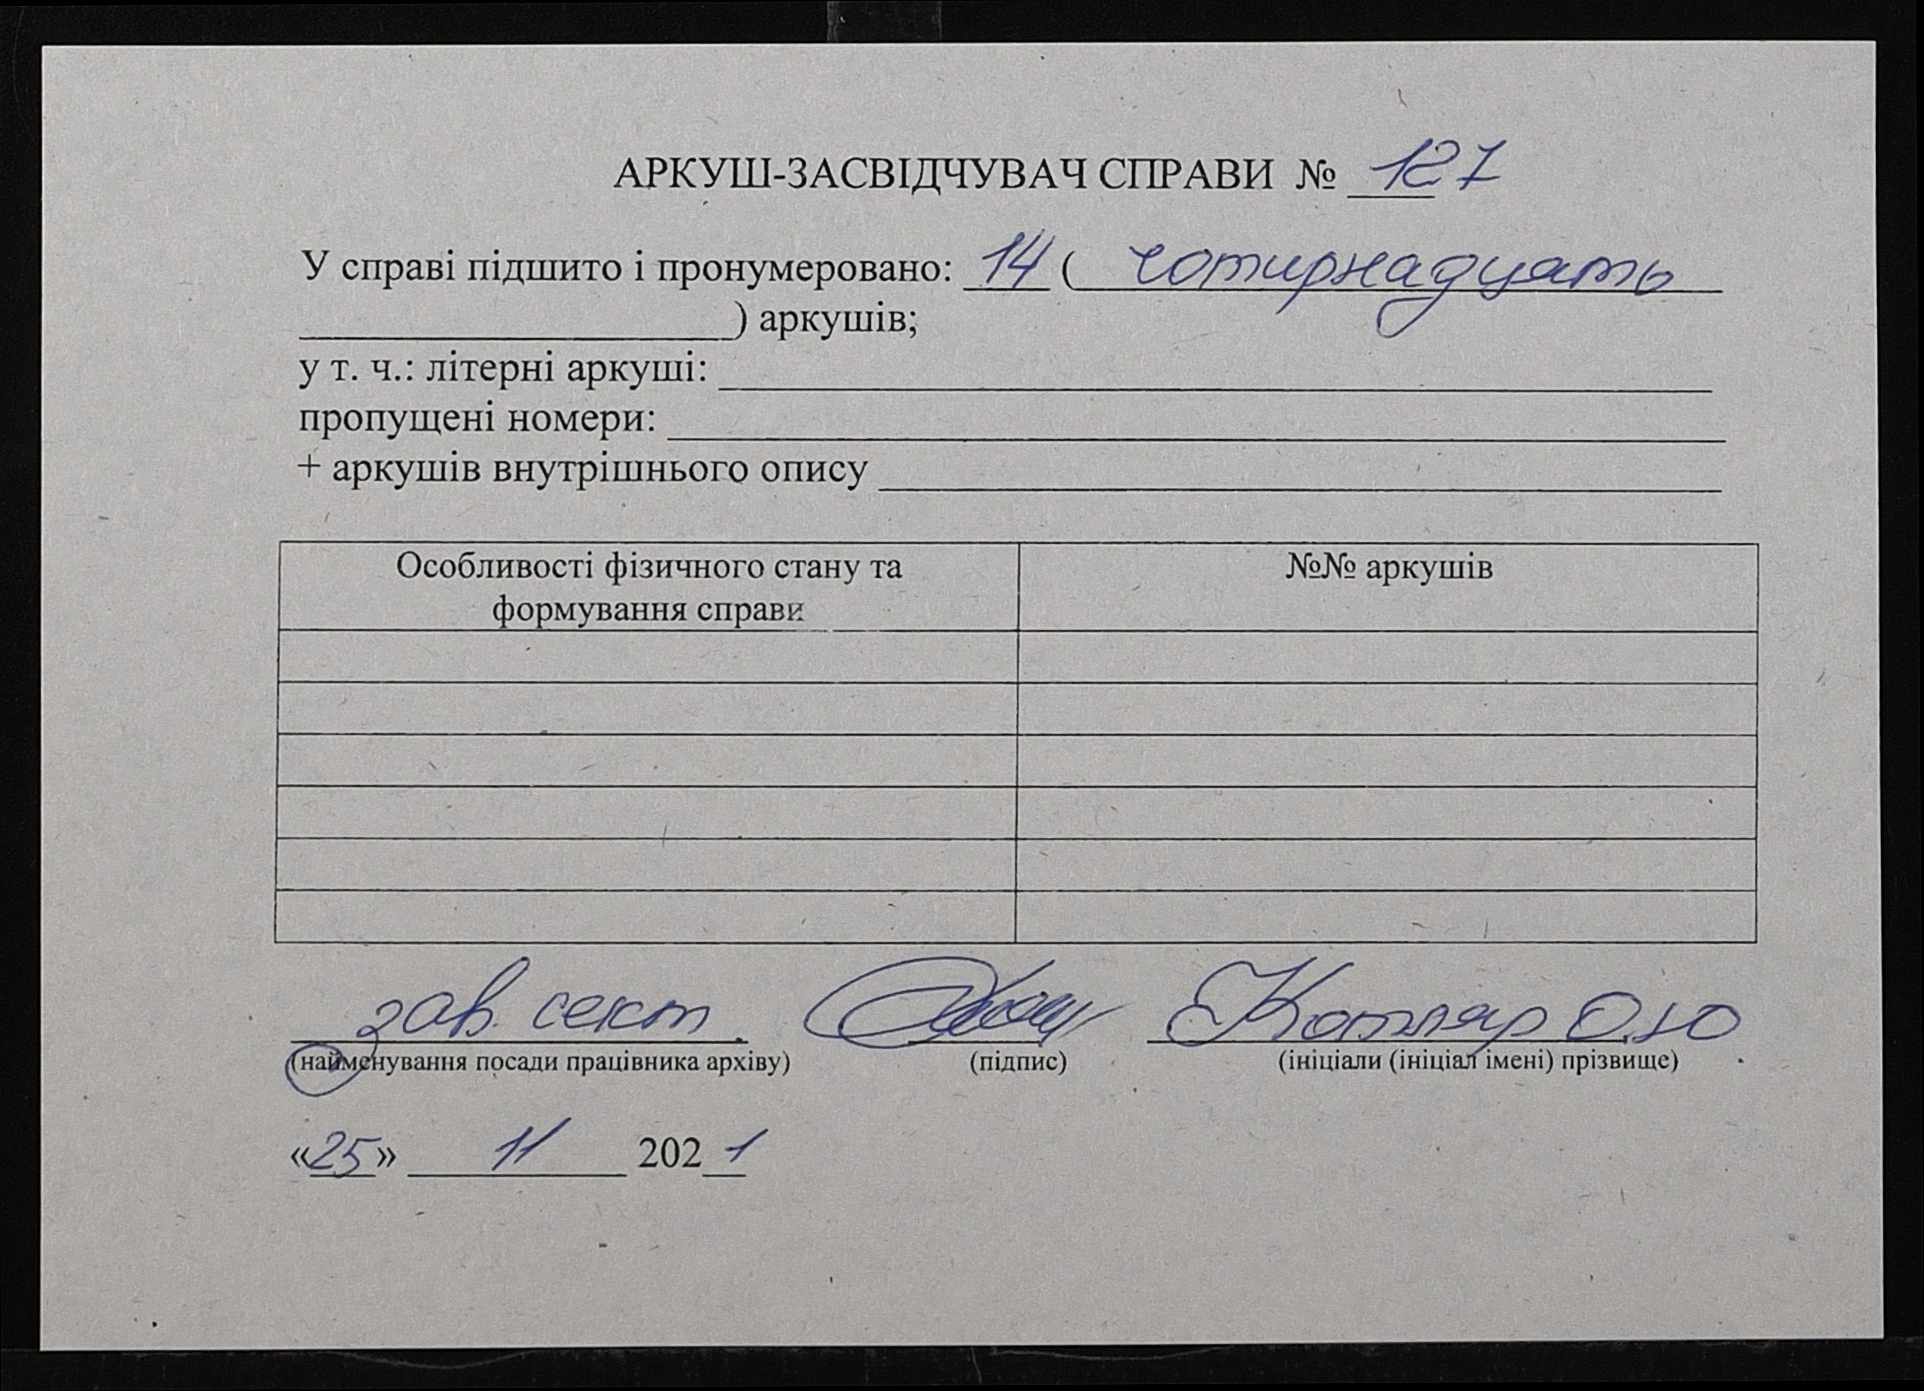 АРКУШ-ЗАСВІДЧУВАЧ СПРАВИ № 127
У справі підшито і пронумеровано: 14 ( чотирнадцять
) аркушів;
у т. ч.: літерні аркуші:
пропущені номери:
+ аркушів внутрішнього опису
Особливості фізичного стану та
формування справи
№№ аркушів
зав. сект. Котляр О.Ю
(найменування посади працівника архіву) (підпис) (ініціали (ініціал імені) прізвище)
«25» 11 2021